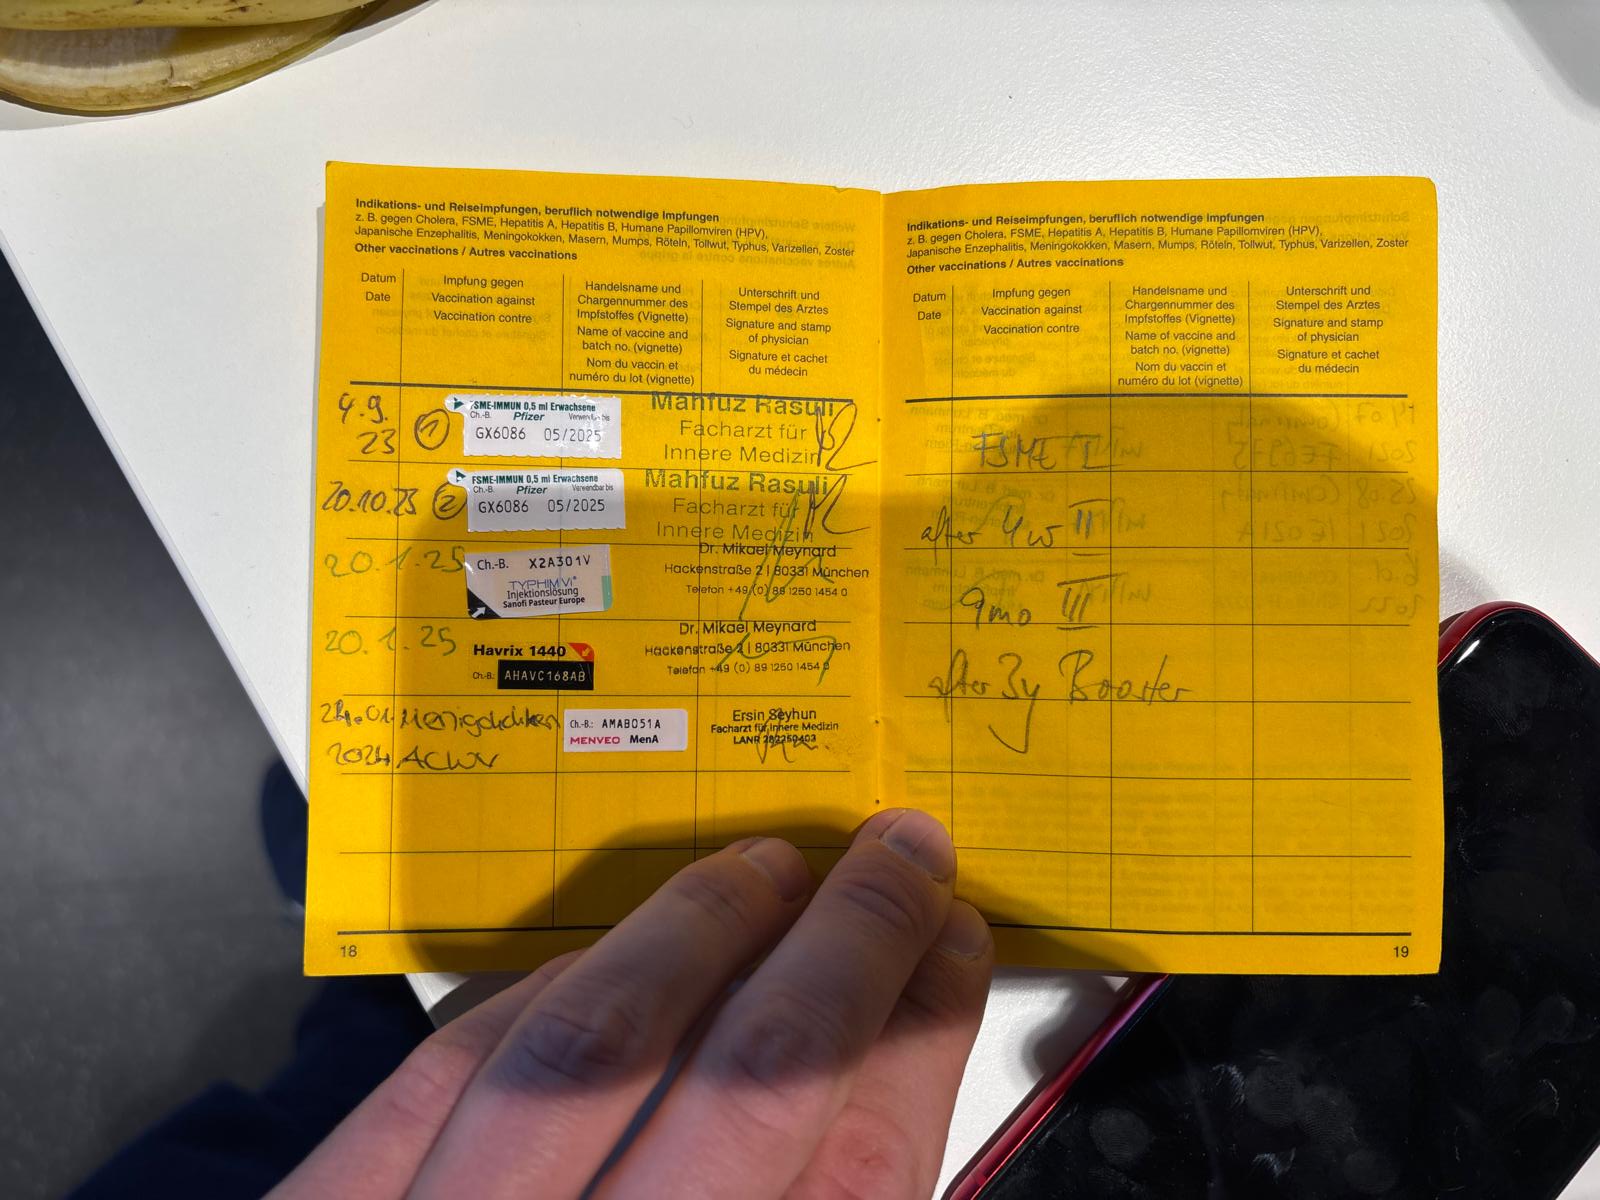 Indikations- und Reiseimpfungen, beruflich notwendige Impfungen
z. B. gegen Cholera, FSME, Hepatitis A, Hepatitis B, Humane Papillomviren (HPV),
Japanische Enzephalitis, Meningokokken, Masern, Mumps, Röteln, Tollwut, Typhus, Varizellen, Zoster
Other vaccinations / Autres vaccinations
Datum
Date
Impfung gegen
Vaccination against
Vaccination contre
Handelsname und
Chargennummer des
Impfstoffes (Vignette)
Name of vaccine and
batch no. (vignette)
Nom du vaccin et
numéro du lot (vignette)
Unterschrift und
Stempel des Arztes
Signature and stamp
of physician
Signature et cachet
du médecin
4.9.
23
1
FSME-IMMUN 0,5 ml Erwachsene
Ch.-B. Pfizer Verwendbar bis
GX6086 05/2025
Mahfuz Rasuli
Facharzt für
Innere Medizin
20.10.23
2
FSME-IMMUN 0,5 ml Erwachsene
Ch.-B. Pfizer Verwendbar bis
GX6086 05/2025
Mahfuz Rasuli
Facharzt für
Innere Medizin
20.1.25
Ch.-B. X2A301V
TYPHIM Vi
Injektionslösung
Sanofi Pasteur Europe
Dr. Mikael Meynard
Hackenstraße 2 | 80331 München
Telefon +49 (0) 89 1250 1454 0
20.1.25
Havrix 1440
Ch.-B.: AHAVC168AB
Dr. Mikael Meynard
Hackenstraße 2 | 80331 München
Telefon +49 (0) 89 1250 1454 0
24.01.
2024
ACWY
Ch.-B.: AMAB051A
MENVEO MenA
Ersin Seyhun
Facharzt für Innere Medizin
LANR
18
Indikations- und Reiseimpfungen, beruflich notwendige Impfungen
z. B. gegen Cholera, FSME, Hepatitis A, Hepatitis B, Humane Papillomviren (HPV),
Japanische Enzephalitis, Meningokokken, Masern, Mumps, Röteln, Tollwut, Typhus, Varizellen, Zoster
Other vaccinations / Autres vaccinations
Datum
Date
Impfung gegen
Vaccination against
Vaccination contre
Handelsname und
Chargennummer des
Impfstoffes (Vignette)
Name of vaccine and
batch no. (vignette)
Nom du vaccin et
numéro du lot (vignette)
Unterschrift und
Stempel des Arztes
Signature and stamp
of physician
Signature et cachet
du médecin
FSME I
after 4w II
9mo III
after 3y Booster
19